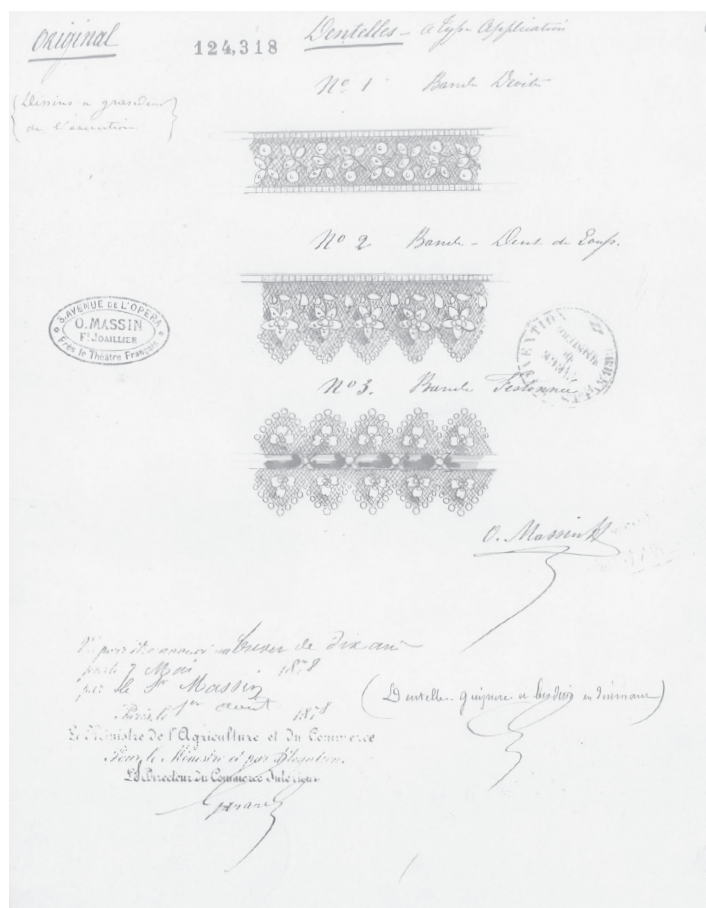 Original
124,318
Dentelles - à type Application
(Dessins à grandeur
de l'exécution)
No 1 Bande Droite
No 2 Bande - Dent de Loup.
3, AVENUE DE L'OPERA
O. MASSIN
Ft JOAILLIER
Près le Théâtre Français
No 3. Bande Festonnée
O. Massin
Vu pour être annexé au Brevet de dix ans
pris le 7 Mai 1878
par le Sr Massin
Paris le 1er août 1878
Le Ministre de l'Agriculture et du Commerce
Pour le Ministre et par délégation.
Le Directeur du Commerce Intérieur
Girard
(Dentelle guipure